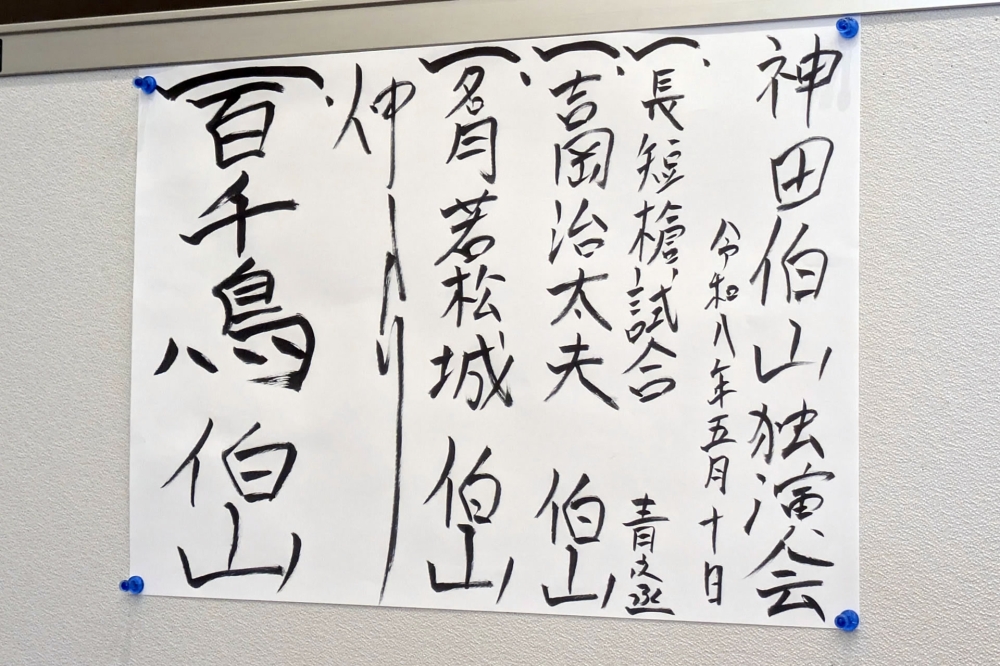 神田伯山独演会
令和八年五月十日
一、長短槍試合 青之丞
一、吉岡治太夫 伯山
一、名月若松城 伯山
仲入り
一、百千鳥 伯山